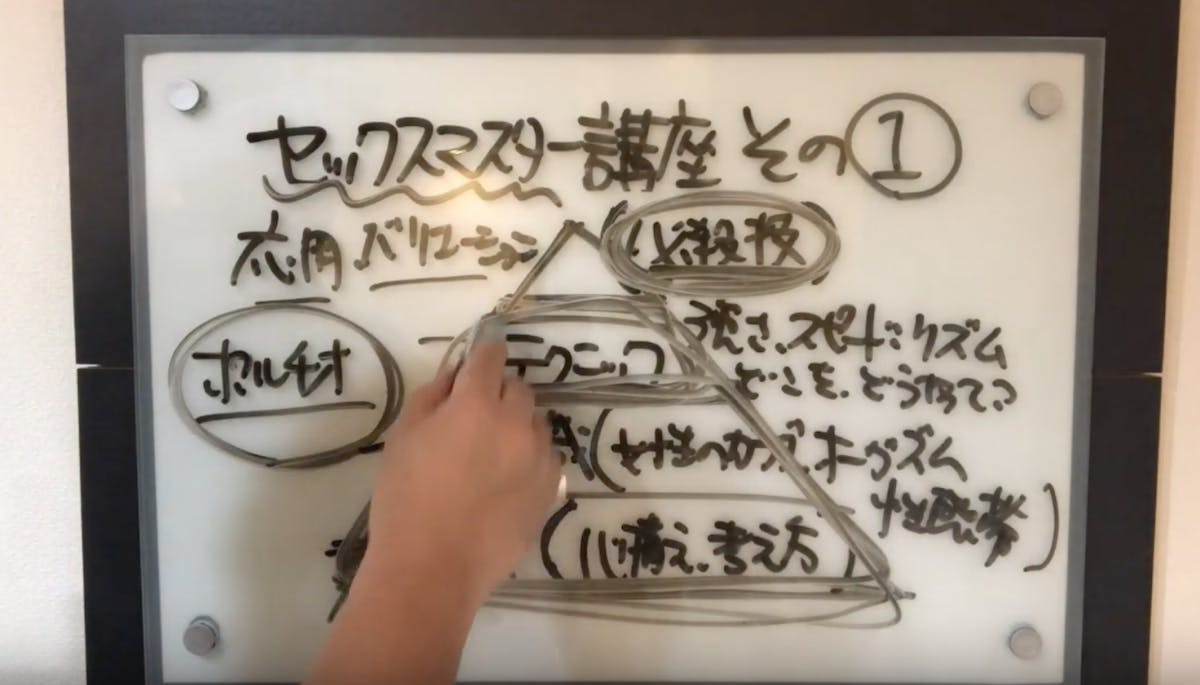 セックスマスター講座 その①
応用 バリエーション (必殺技)
ポルチオ テクニック 強さ、スピード、リズム
どこを、どうやって?
(女性のカラダ、オーガズム
性感帯)
(心構え、考え方)